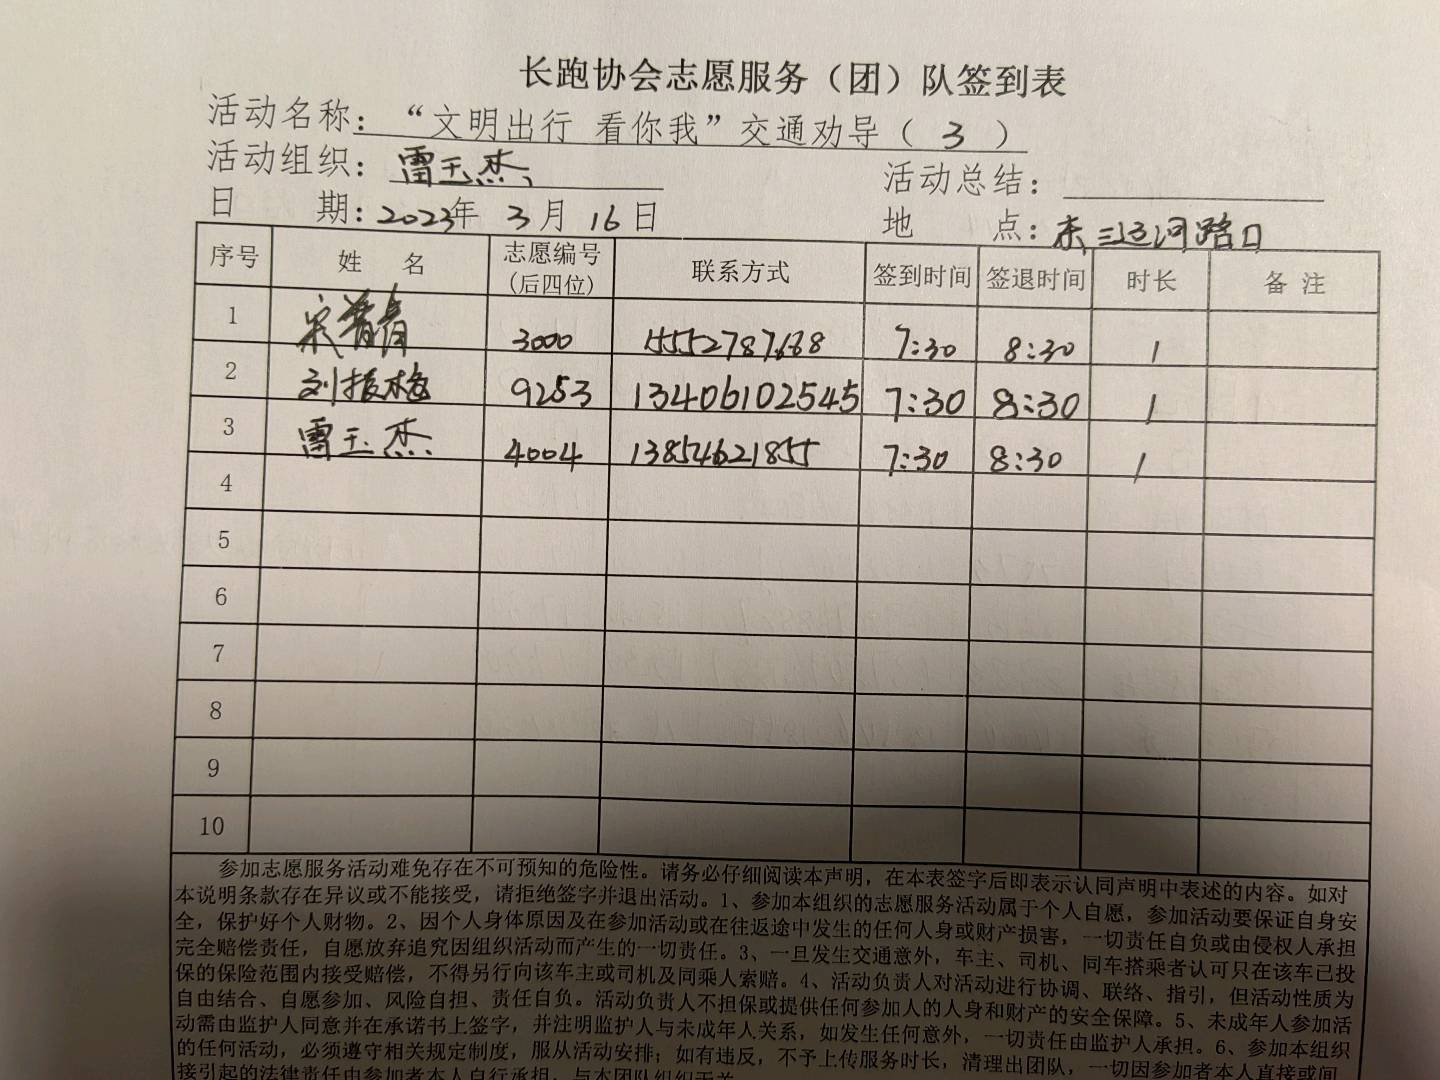 长跑协会志愿服务（团）队签到表
活动名称：“文明出行 看你我”交通劝导（ 3 ）
活动组织：雷玉杰 活动总结：
日 期：2023年 3 月 16 日 地 点：东三运河路口
序号 姓 名 志愿编号(后四位) 联系方式 签到时间 签退时间 时长 备 注
1 宋 3000 15552787668 7:30 8:30 1
2 刘振梅 9253 13406102545 7:30 8:30 1
3 雷玉杰 4004 13854621855 7:30 8:30 1
4
5
6
7
8
9
10
参加志愿服务活动难免存在不可预知的危险性。请务必仔细阅读本声明，在本表签字后即表示认同声明中表述的内容。如对
本说明条款存在异议或不能接受，请拒绝签字并退出活动。1、参加本组织的志愿服务活动属于个人自愿，参加活动要保证自身安
全，保护好个人财物。2、因个人身体原因及在参加活动或在往返途中发生的任何人身或财产损害，一切责任自负或由侵权人承担
完全赔偿责任，自愿放弃追究因组织活动而产生的一切责任。3、一旦发生交通意外，车主、司机、同车搭乘者认可只在该车已投
保的保险范围内接受赔偿，不得另行向该车主或司机及同乘人索赔。4、活动负责人对活动进行协调、联络、指引，但活动性质为
自由结合、自愿参加、风险自担、责任自负。活动负责人不担保或提供任何参加人的人身和财产的安全保障。5、未成年人参加活
动需由监护人同意并在承诺书上签字，并注明监护人与未成年人关系，如发生任何意外，一切责任由监护人承担。6、参加本组织
的任何活动，必须遵守相关规定制度，服从活动安排；如有违反，不予上传服务时长，清理出团队，一切因参加者本人直接或间
接引起的法律责任由参加者本人自行承担，与本团队组织无关